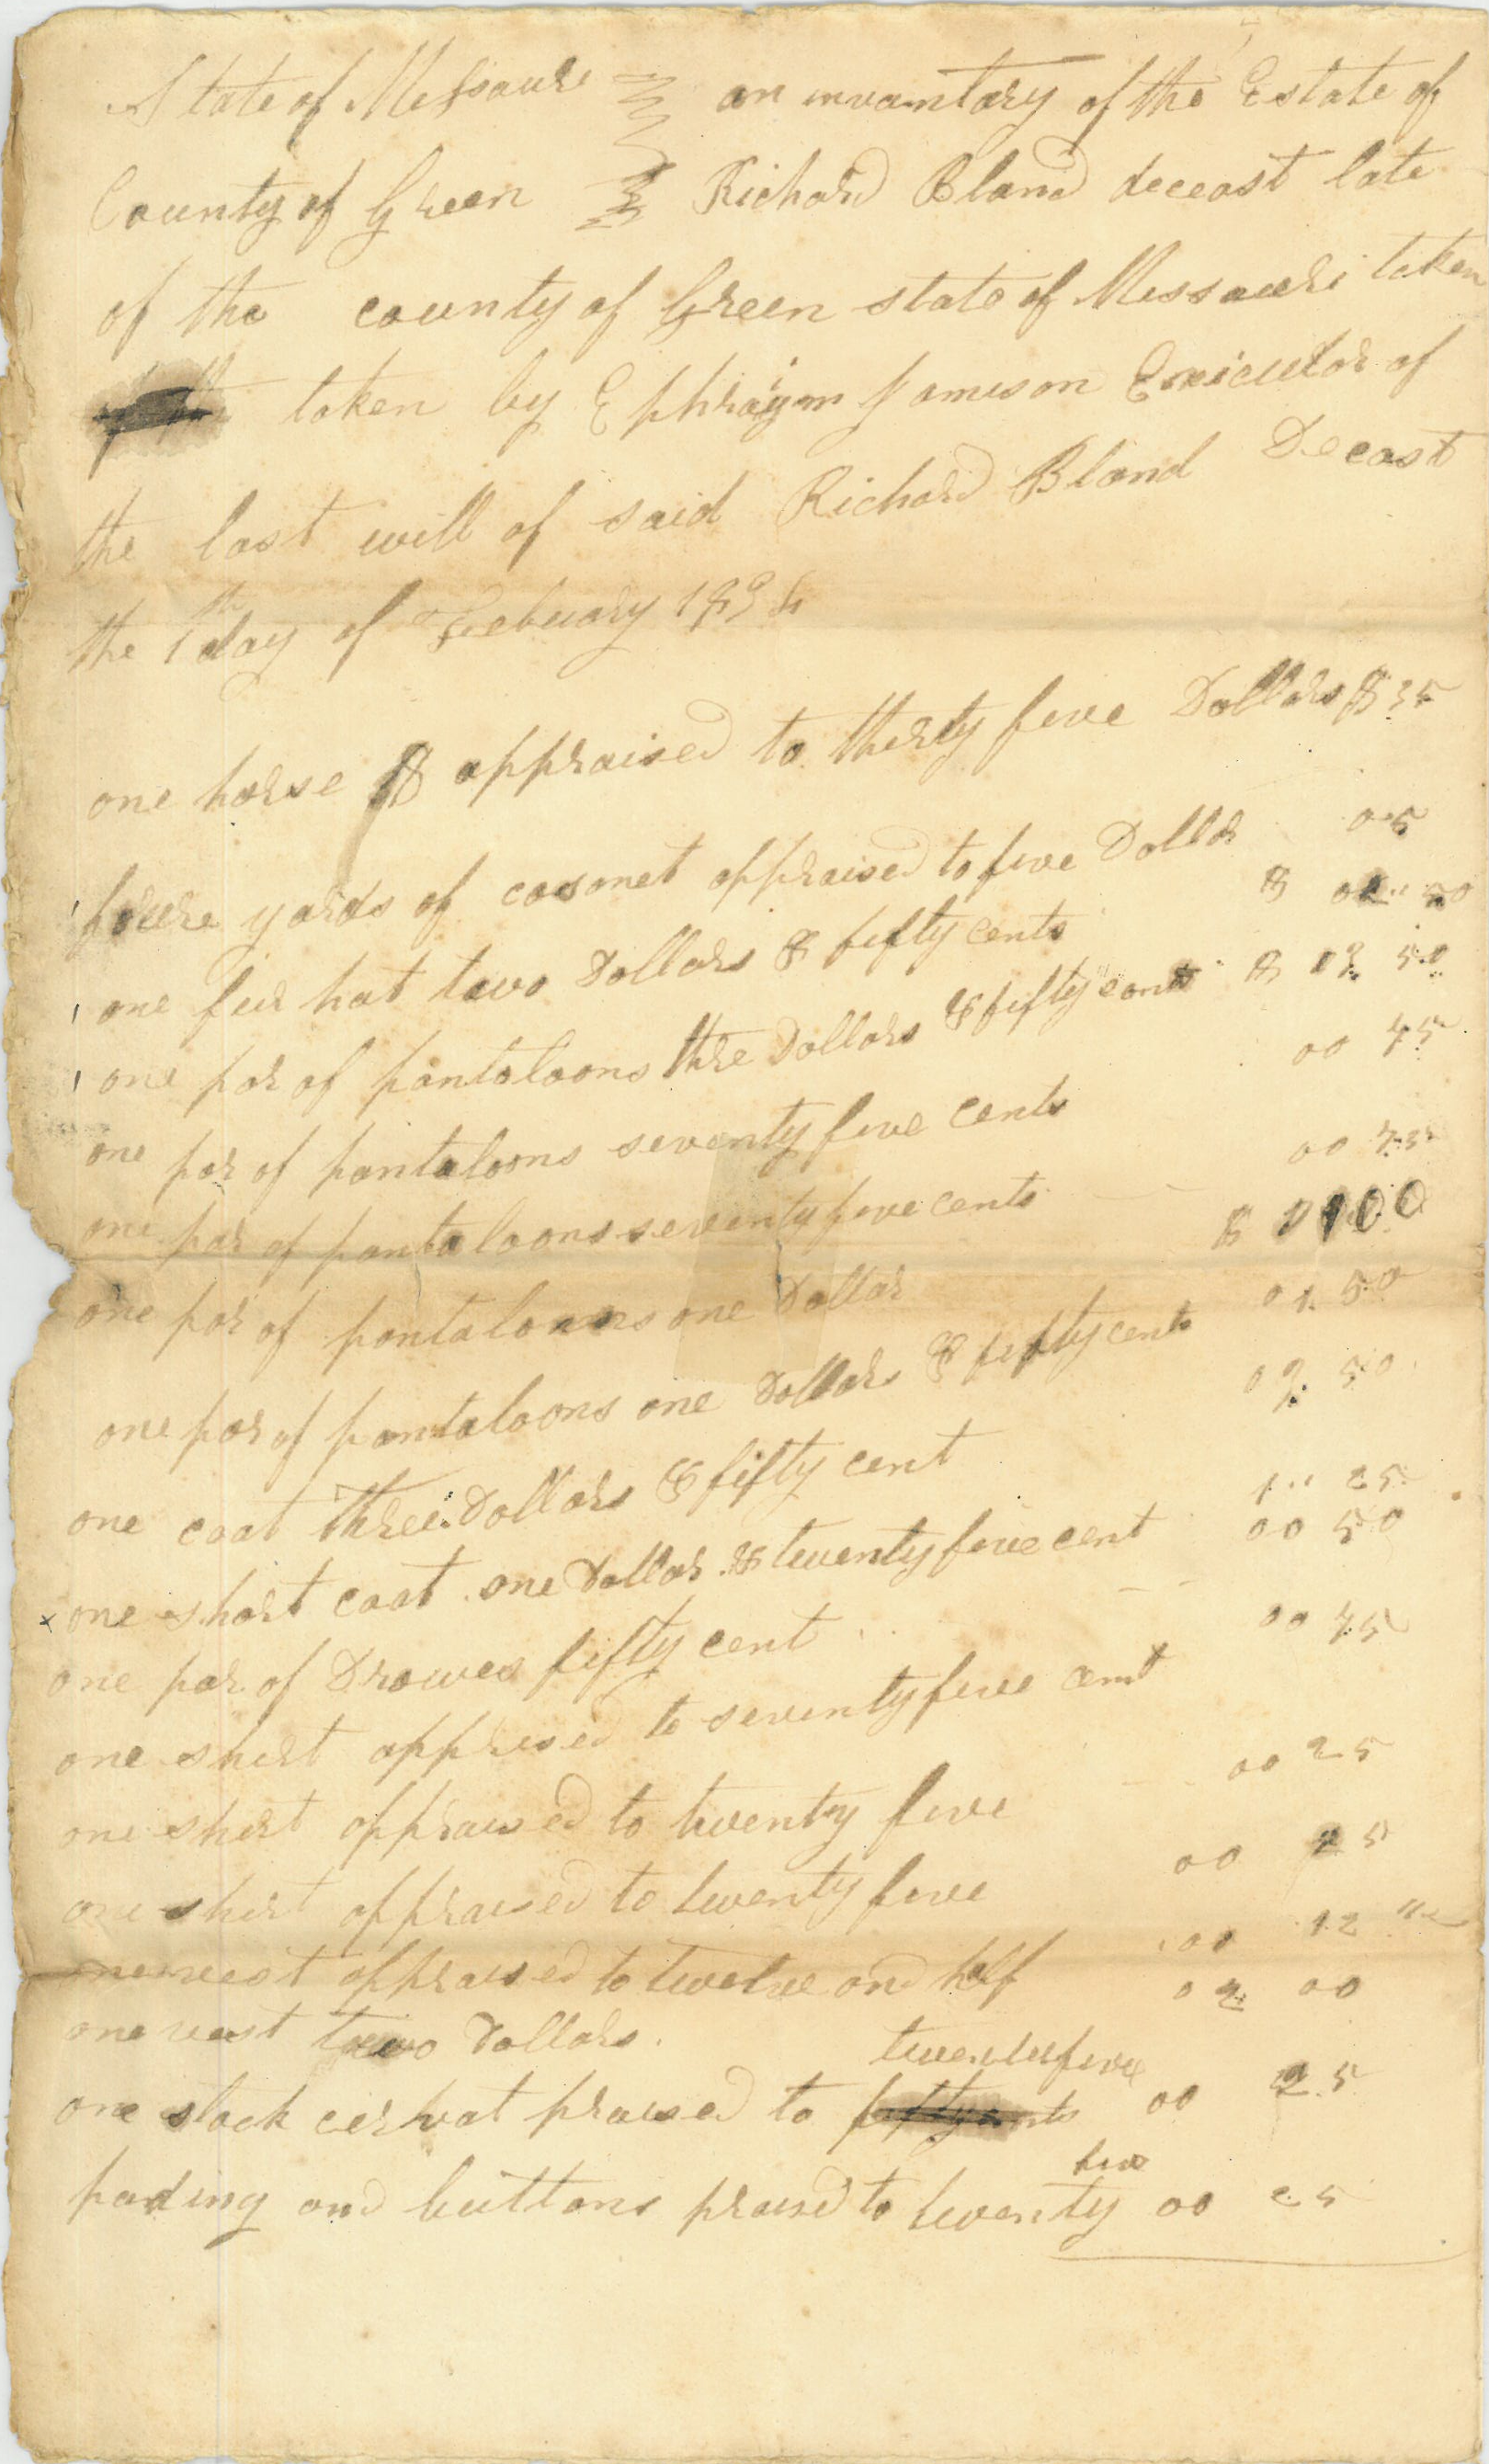 State of Messoure an invantary of the Estate of
County of Green Richard Bland deceast late
of the county of Green state of Messouri taken
taken by Ephraym Jameson Exicutor of
the last will of said Richard Bland Decast
the 1th day of Febuary 1834
one horse $ appraised to therty five Dollars $ 35
foure yards of casonet appraised to five Dollar 05
one fur hat two Dollars & fifty cents $ 02 50
one par of pantaloons thre Dollars & fifty cents $ 03 50
one par of pantaloons seventy five cents 00 75
one par of pantaloons seventy five cents 00 75
one par of pantaloons one Dollar $ 0100
one par of pantaloons one Dollars & fifty cents 01 50
one coat three Dollars & fifty cent 03 50
x one short coat one Dollar & twenty five cent 1 25
one par of Drawes fifty cent 00 50
one shirt apprised to seventy five cent 00 75
one shirt appraised to twenty five 00 25
one shirt appraised to twenty five 00 25
one vest appraised to twelve and half 00 12 1/2
one vest two Dollars 02 00
twentyfive
one stock cervat praised to fifty cents 00 25
five
pading and buttons praisd to twenty 00 25